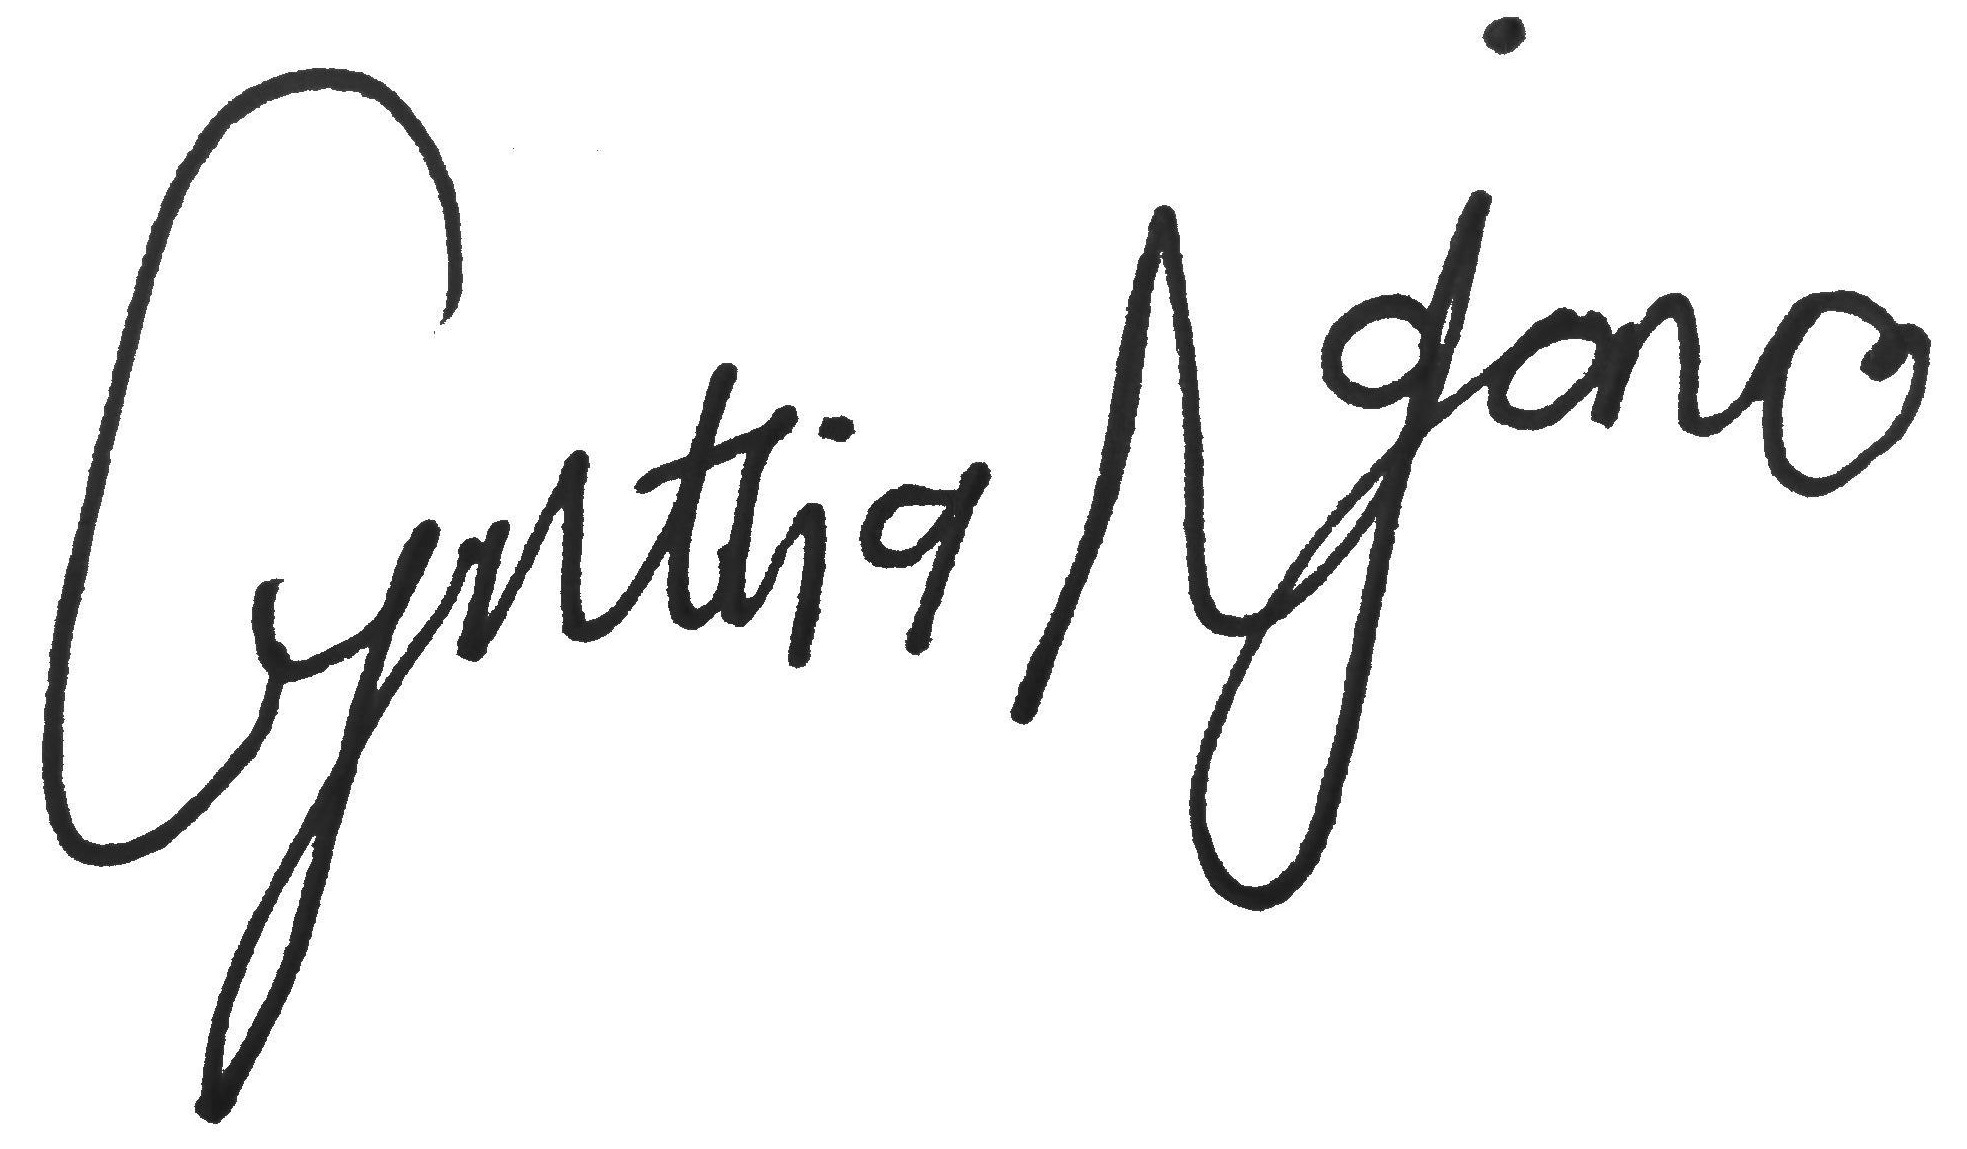 Cynthia Ngono